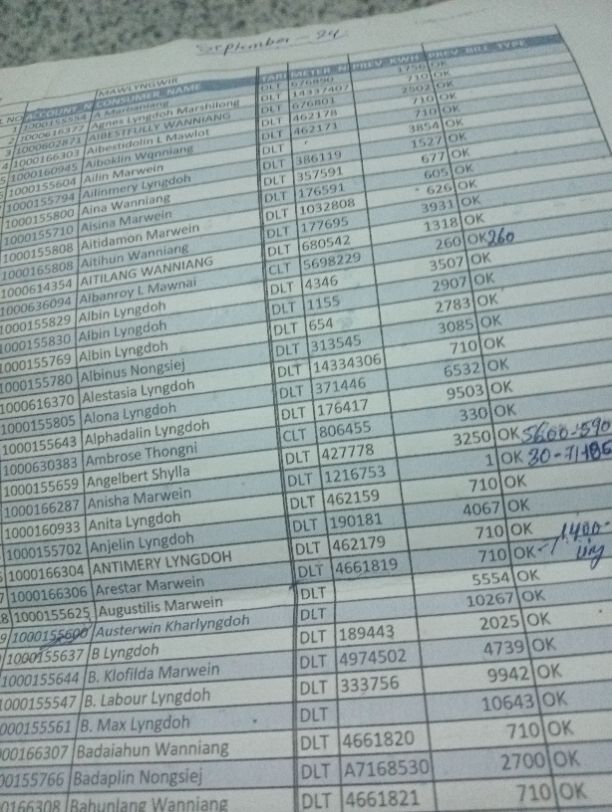 September - 24
MAWLYNGWIR
L NO ACCOUNT N CONSUMER NAME TARI METER N PREV KWH PREV BILL TYPE
1 1000155554 A Marbaniang DLT 676890 1756 OK
2 1000616377 Agnes Lyngdoh Marshilong DLT 14337407 710 OK
3 1000602871 AIBESTFULLY WANNIANG DLT 676801 2502 OK
4 1000166303 Aibestidolin L Mawlot DLT 462178 710 OK
5 1000160945 Aiboklin Wanniang DLT 462171 710 OK
1000155604 Ailin Marwein DLT 3854 OK
1000155794 Ailinmery Lyngdoh DLT 386119 1527 OK
1000155800 Aina Wanniang DLT 357591 677 OK
1000155710 Aisina Marwein DLT 176591 605 OK
1000155808 Aitidamon Marwein DLT 1032808 626 OK
1000165808 Aitihun Wanniang DLT 177695 3931 OK
1000614354 AITILANG WANNIANG DLT 680542 1318 OK
1000636094 Albanroy L Mawnai CLT 5698229 260 OK 260
1000155829 Albin Lyngdoh DLT 4346 3507 OK
1000155830 Albin Lyngdoh DLT 1155 2907 OK
1000155769 Albin Lyngdoh DLT 654 2783 OK
1000155780 Albinus Nongsiej DLT 313545 3085 OK
1000616370 Alestasia Lyngdoh DLT 14334306 710 OK
1000155805 Alona Lyngdoh DLT 371446 6532 OK
1000155643 Alphadalin Lyngdoh DLT 176417 9503 OK
1000630383 Ambrose Thongni CLT 806455 330 OK
1000155659 Angelbert Shylla DLT 427778 3250 OK 5600-590
1000166287 Anisha Marwein DLT 1216753 1 OK 30-71-185
1000160933 Anita Lyngdoh DLT 462159 710 OK
1000155702 Anjelin Lyngdoh DLT 190181 4067 OK
1000166304 ANTIMERY LYNGDOH DLT 462179 710 OK
7 1000166306 Arestar Marwein DLT 4661819 710 OK 1400
8 1000155625 Augustilis Marwein DLT 5554 OK
9 1000155600 Austerwin Kharlyngdoh DLT 10267 OK
1000155637 B Lyngdoh DLT 189443 2025 OK
1000155644 B. Klofilda Marwein DLT 4974502 4739 OK
000155547 B. Labour Lyngdoh DLT 333756 9942 OK
000155561 B. Max Lyngdoh DLT 10643 OK
000166307 Badaiahun Wanniang DLT 4661820 710 OK
00155766 Badaplin Nongsiej DLT A7168530 2700 OK
00166308 Bahunlang Wanniang DLT 4661821 710 OK